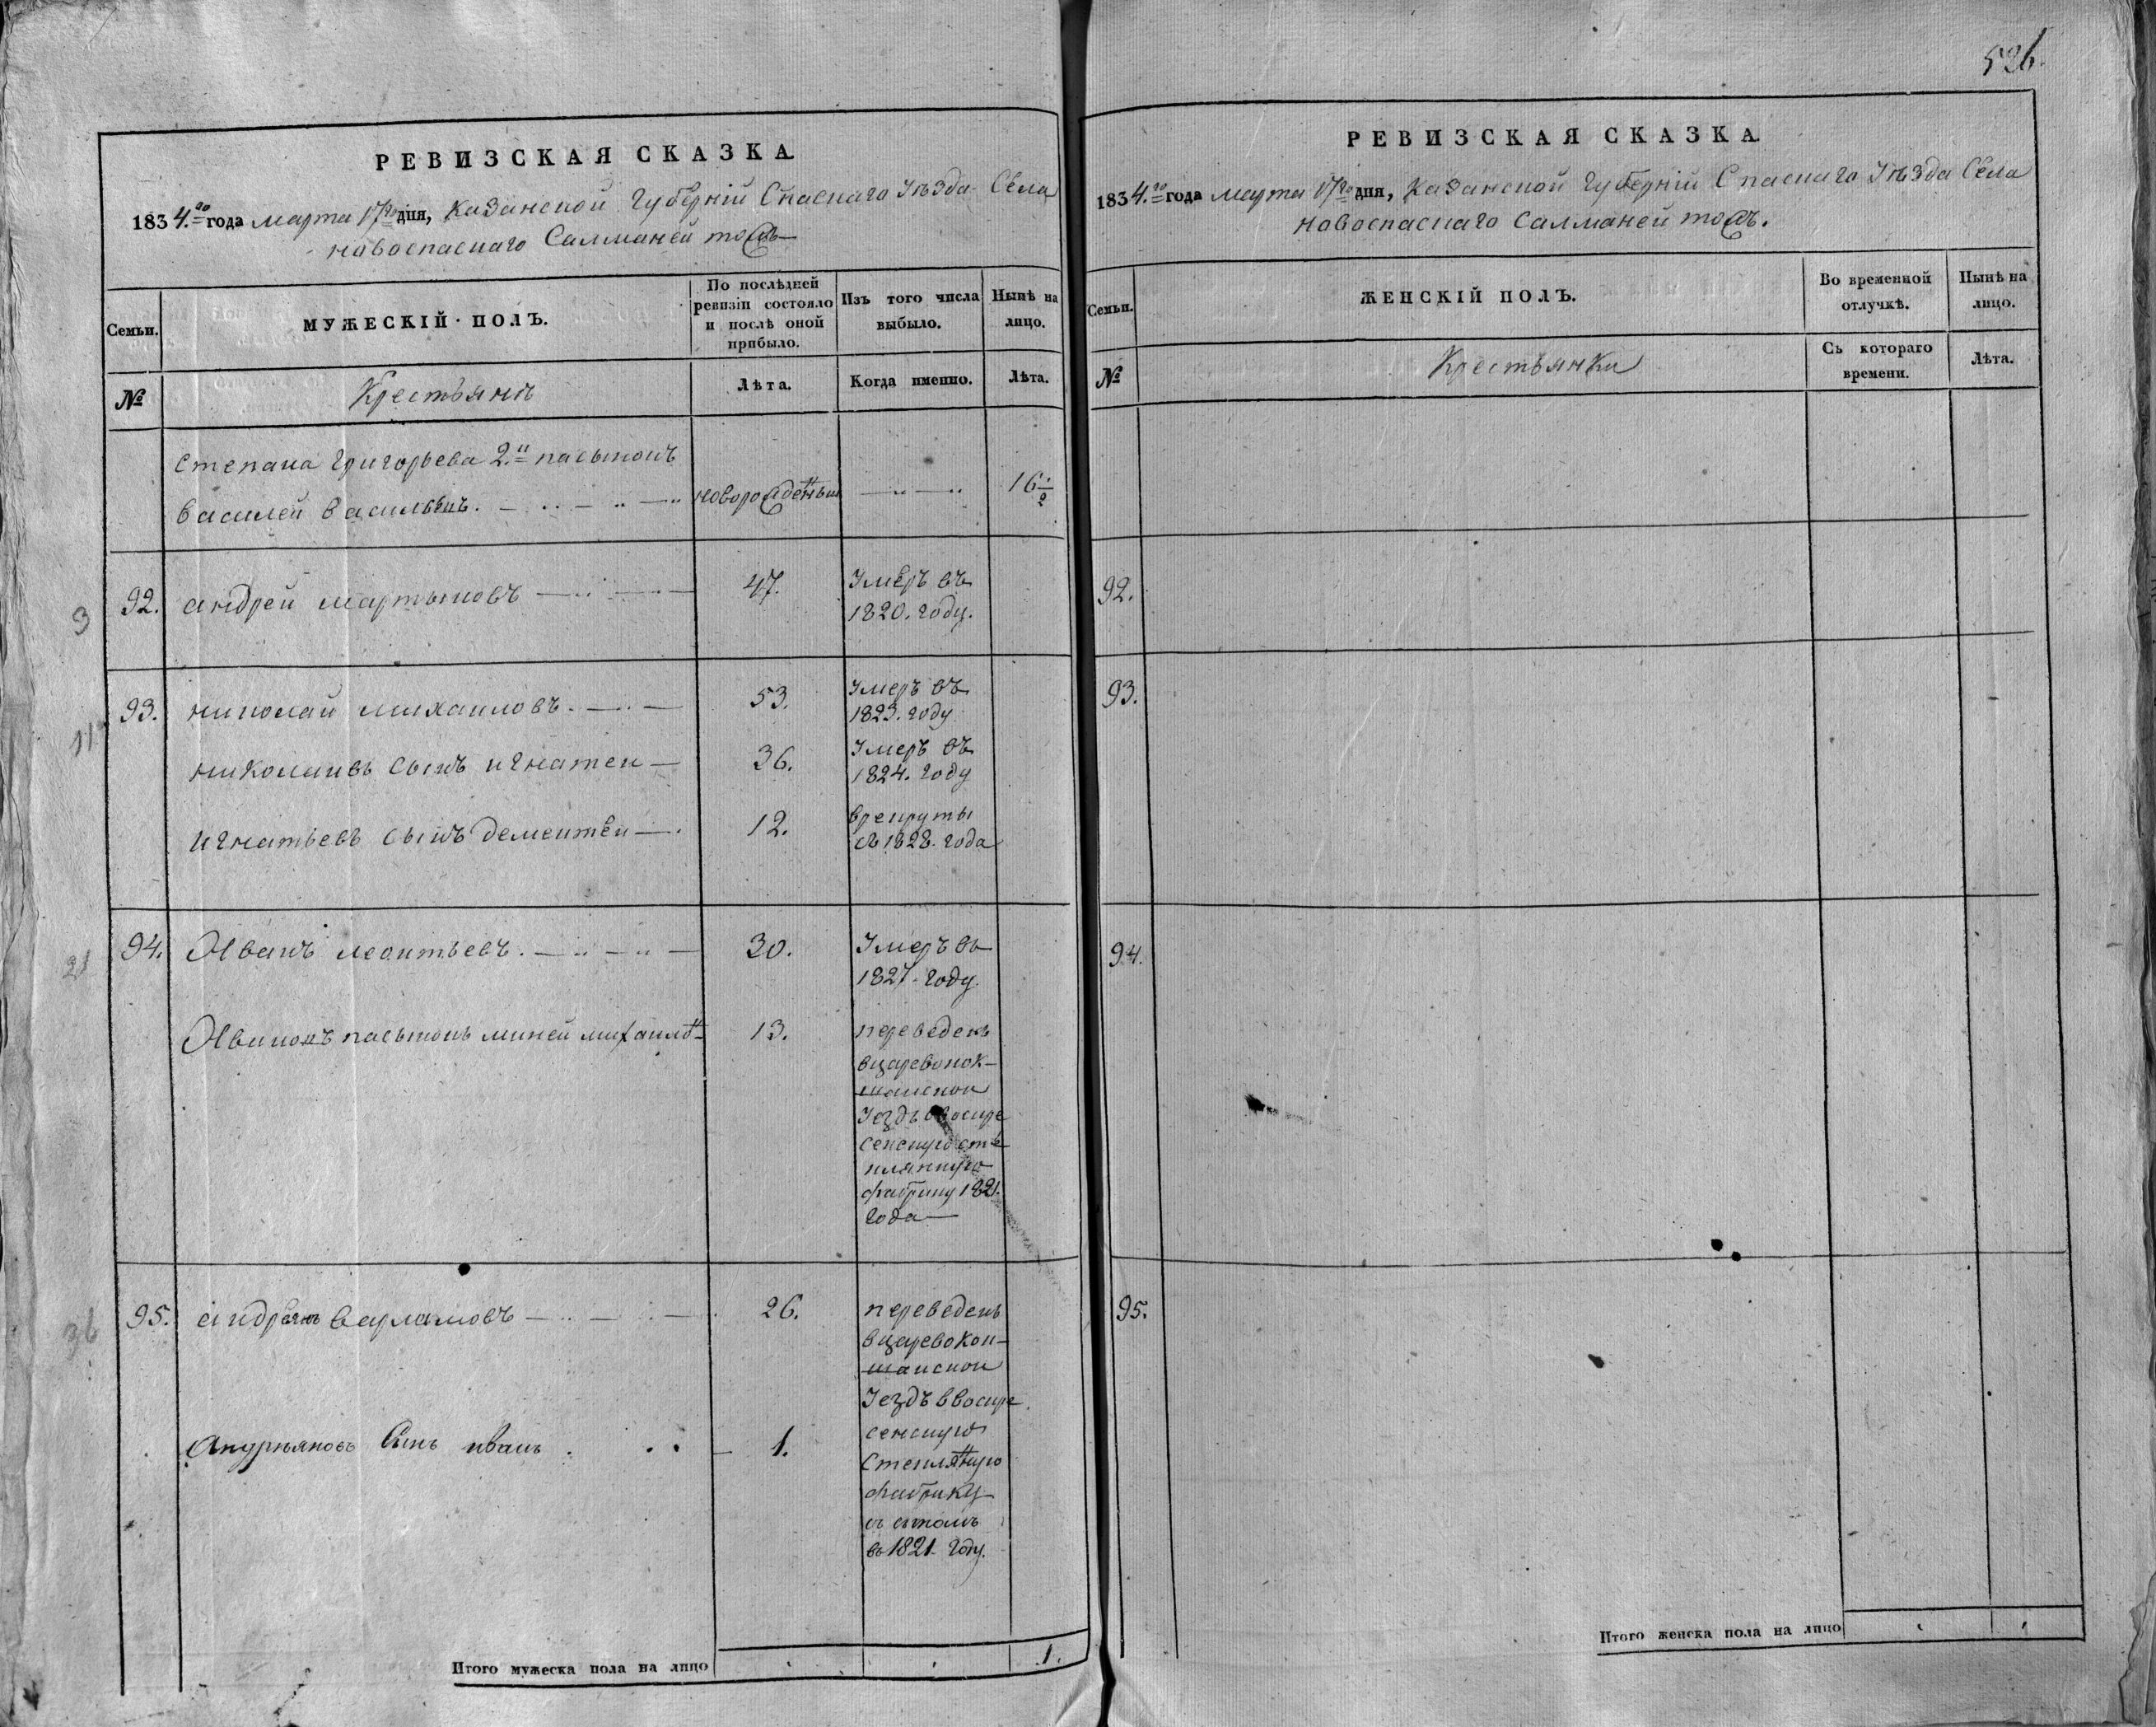 526.
РЕВИЗСКАЯ СКАЗКА
1834.го года марта 17го дня, Казанской Губерніи Спаскаго Уѣзда Села
новоспаскаго Салманей тожъ
Семьи.
МУЖЕСКІЙ ПОЛЪ.
По послѣдней ревизіи состояло и послѣ оной прибыло.
Изъ того числа выбыло.
Нынѣ на лицо.
№
Крестьянъ
Лѣта.
Когда именно.
Лѣта.
Степана Григорьева 2й пасынокъ
василей васильевъ. новорожденный 16 1/2
92. андрей мартыновъ 47. Умеръ въ
1820. году.
93. николай михаиловъ. 53. Умеръ въ
1823. году
николаивъ сынъ игнатеи 36. Умеръ въ
1824. году
игнатьевъ сынъ дементеи 12. врекруты
съ 1828. года
94. Иванъ леонтьевъ. 30. Умеръ въ
1827. году.
пасынокъ миней михаило 13. переведенъ
вцаревокок-
шаискои
Уездъ ввоскре
сенскую сте
клянную
фабрику 1821.
года
95. андреянъ варламовъ 26. переведенъ
вцаревокок-
шаискои
Уездъ ввоскре
сенскую
Стеклянную
фабрику
съ отцомъ
въ 1821. году.
сынъ иванъ 1.
Итого мужеска пола на лицо 1.
РЕВИЗСКАЯ СКАЗКА.
1834.го года марта 17го дня, Казанской Губерніи Спаскаго Уѣзда Села
новоспаскаго Салманей тожъ.
Семьи.
ЖЕНСКІЙ ПОЛЪ.
Во временной отлучкѣ.
Нынѣ на лицо.
№
Крестьянки
Съ котораго времени.
Лѣта.
92.
93.
94.
95.
Итого женска пола на лицо